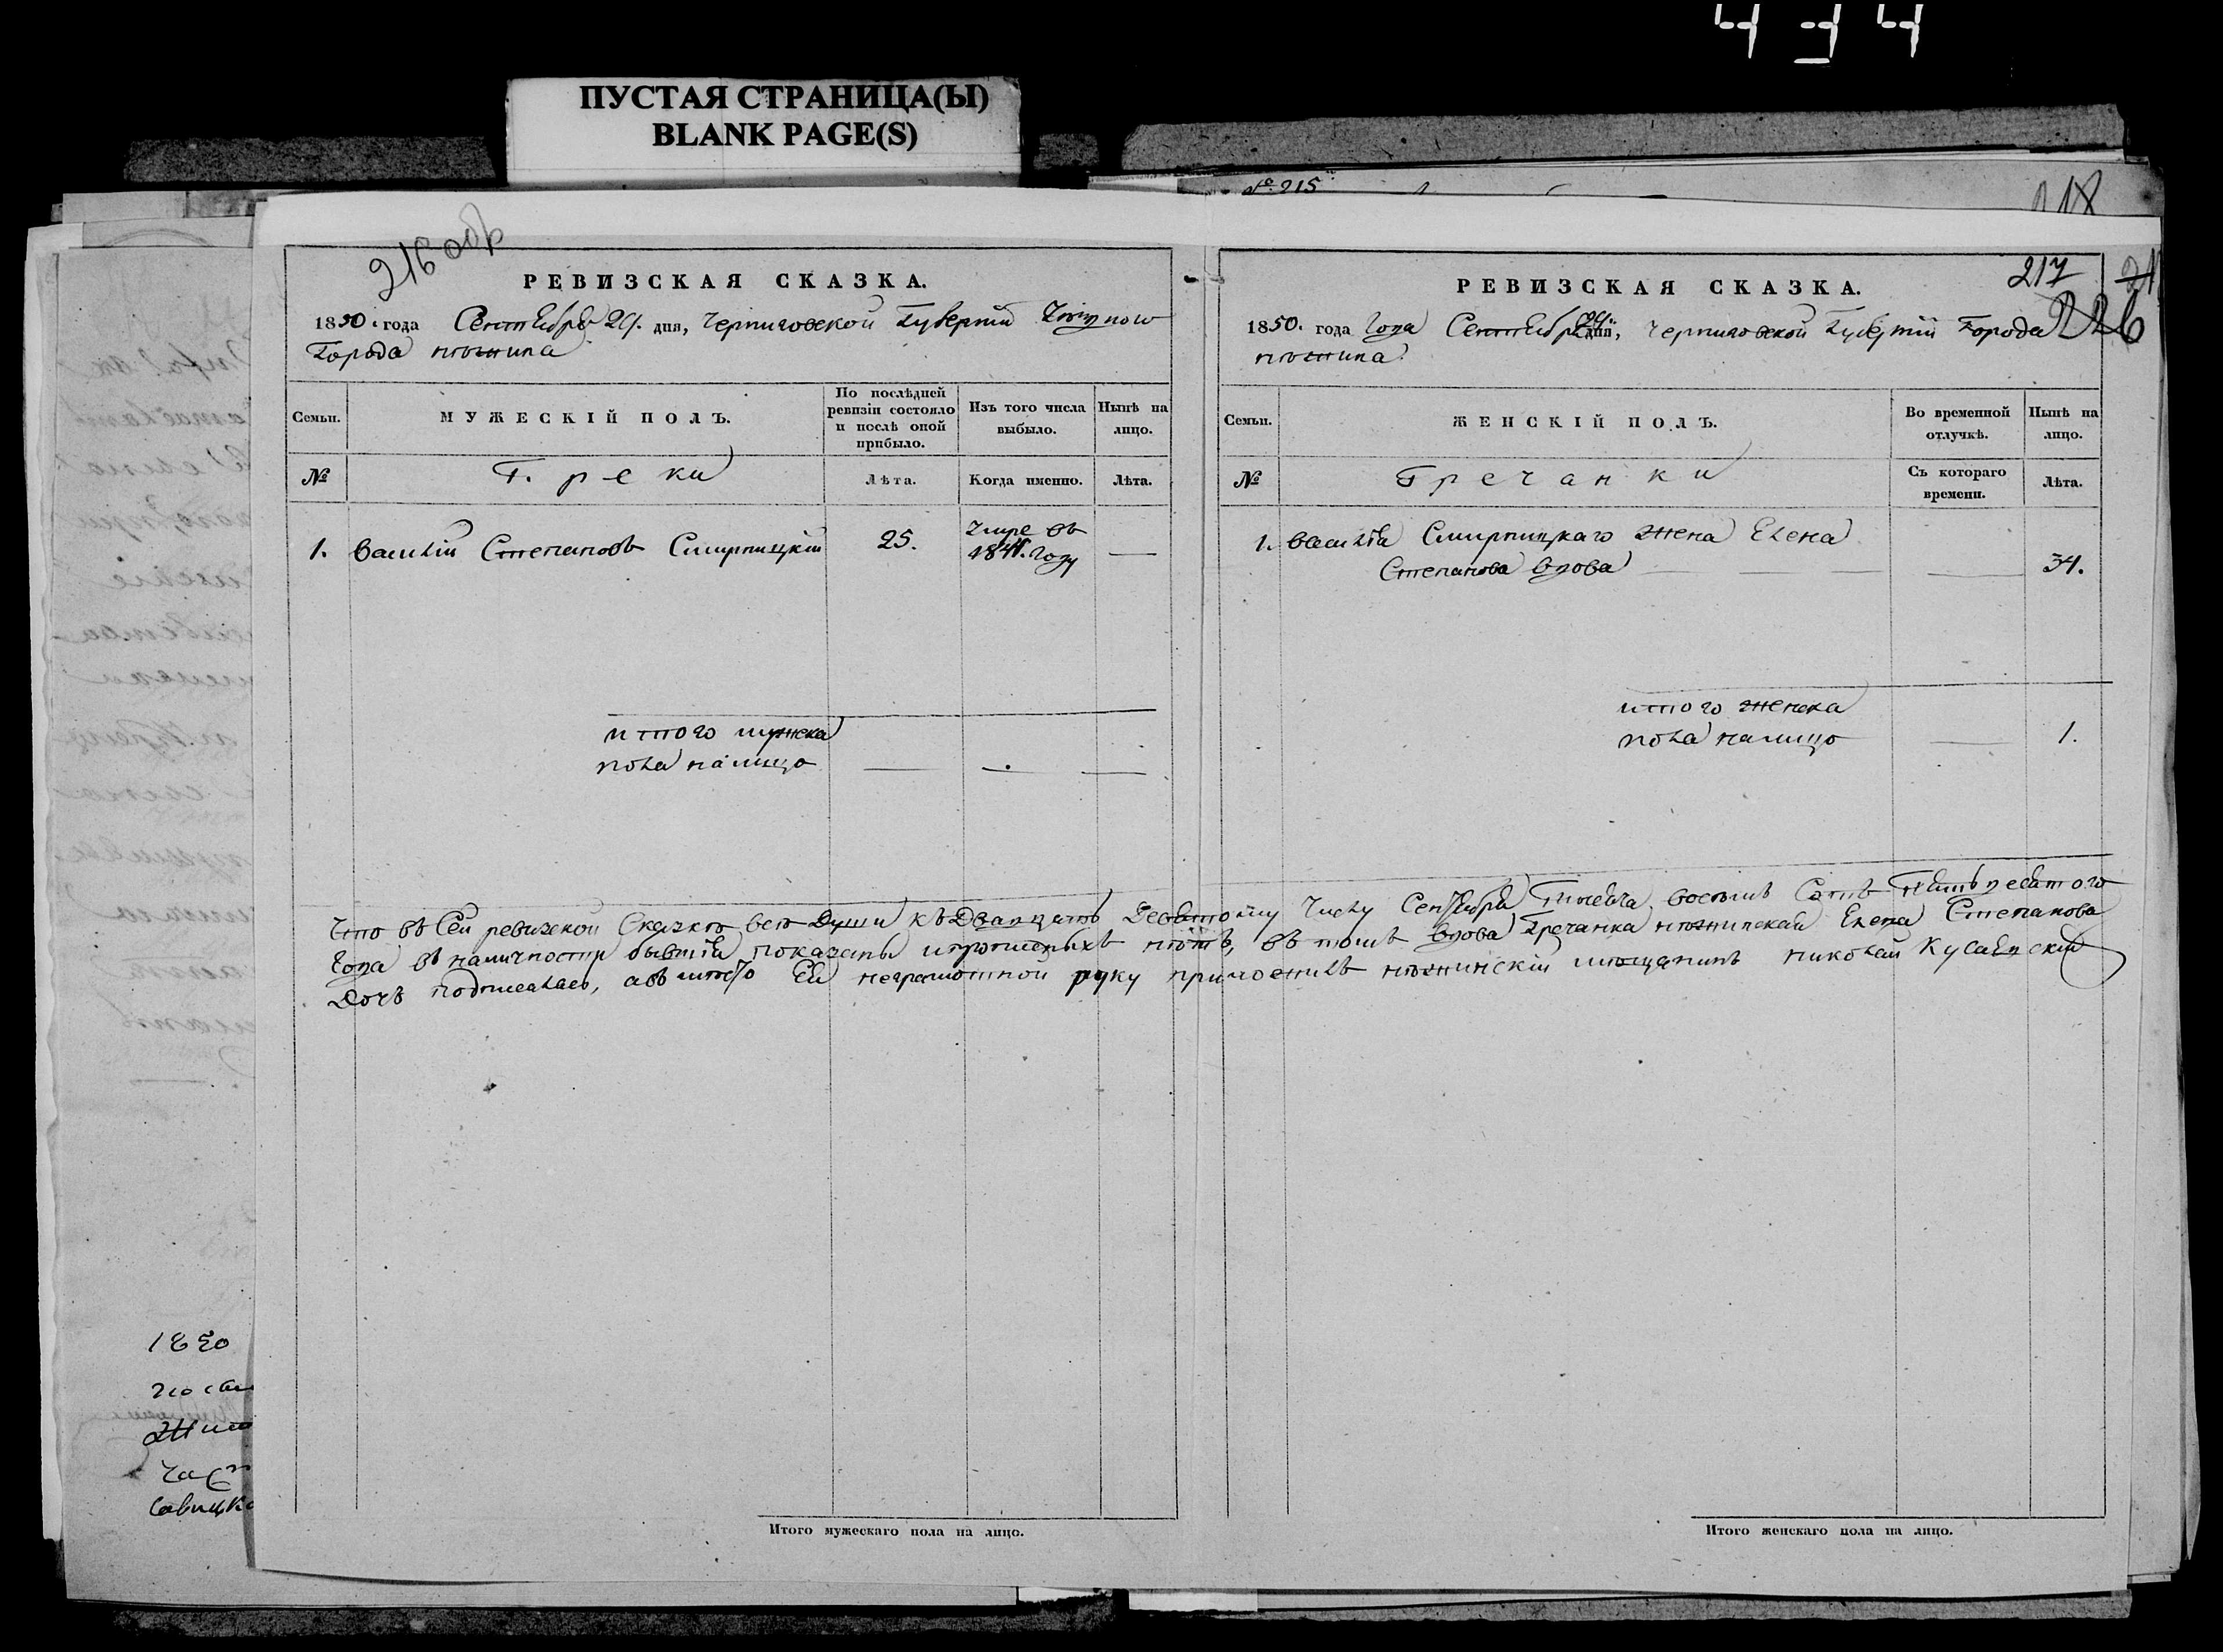 ПУСТАЯ СТРАНИЦА(Ы)
BLANK PAGE(S)
№ 215
216 обр
РЕВИЗСКАЯ СКАЗКА.
1850 года Сентября 29. дня, Черниговской Губернiи
Города нѣжина
Семьи.
МУЖЕСКIЙ ПОЛЪ.
По послѣдней ревизiи состояло и послѣ оной прибыло.
Изъ того числа выбыло.
Нынѣ на лицо.
№
Греки
Лѣта.
Когда именно.
Лѣта.
1.
Василiй Степановъ Смирницкiй
25.
Умре въ
году
итого мужска
пола налицо
217
226
РЕВИЗСКАЯ СКАЗКА.
1850. года Года Сентября 29. дня, Черниговской Губернiи Города
нѣжина
Семьи.
ЖЕНСКIЙ ПОЛЪ.
Во временной отлучкѣ.
Нынѣ на лицо.
№
Гречанки
Съ котораго времени.
Лѣта.
1.
Василiя Смирницкаго жена Елена
Степанова вдова
34.
итого женска
пола налицо
1.
Что въ Сей ревизской Сказкѣ всѣ Души къ Дватцать Девятому Числу Сентября Тысеча восемъ Сотъ Пятьдесятого
Года въ наличности бывшiя показаны и прописныхъ нѣтъ, въ томъ вдова Гречанка нѣжинская Елена Степанова
Дочь подписалась, а вмѣсто Ей неграмотной руку приложилъ нѣжинскiй мѣщанинъ николай
Итого мужескаго пола на лицо.
Итого женскаго пола на лицо.
1850